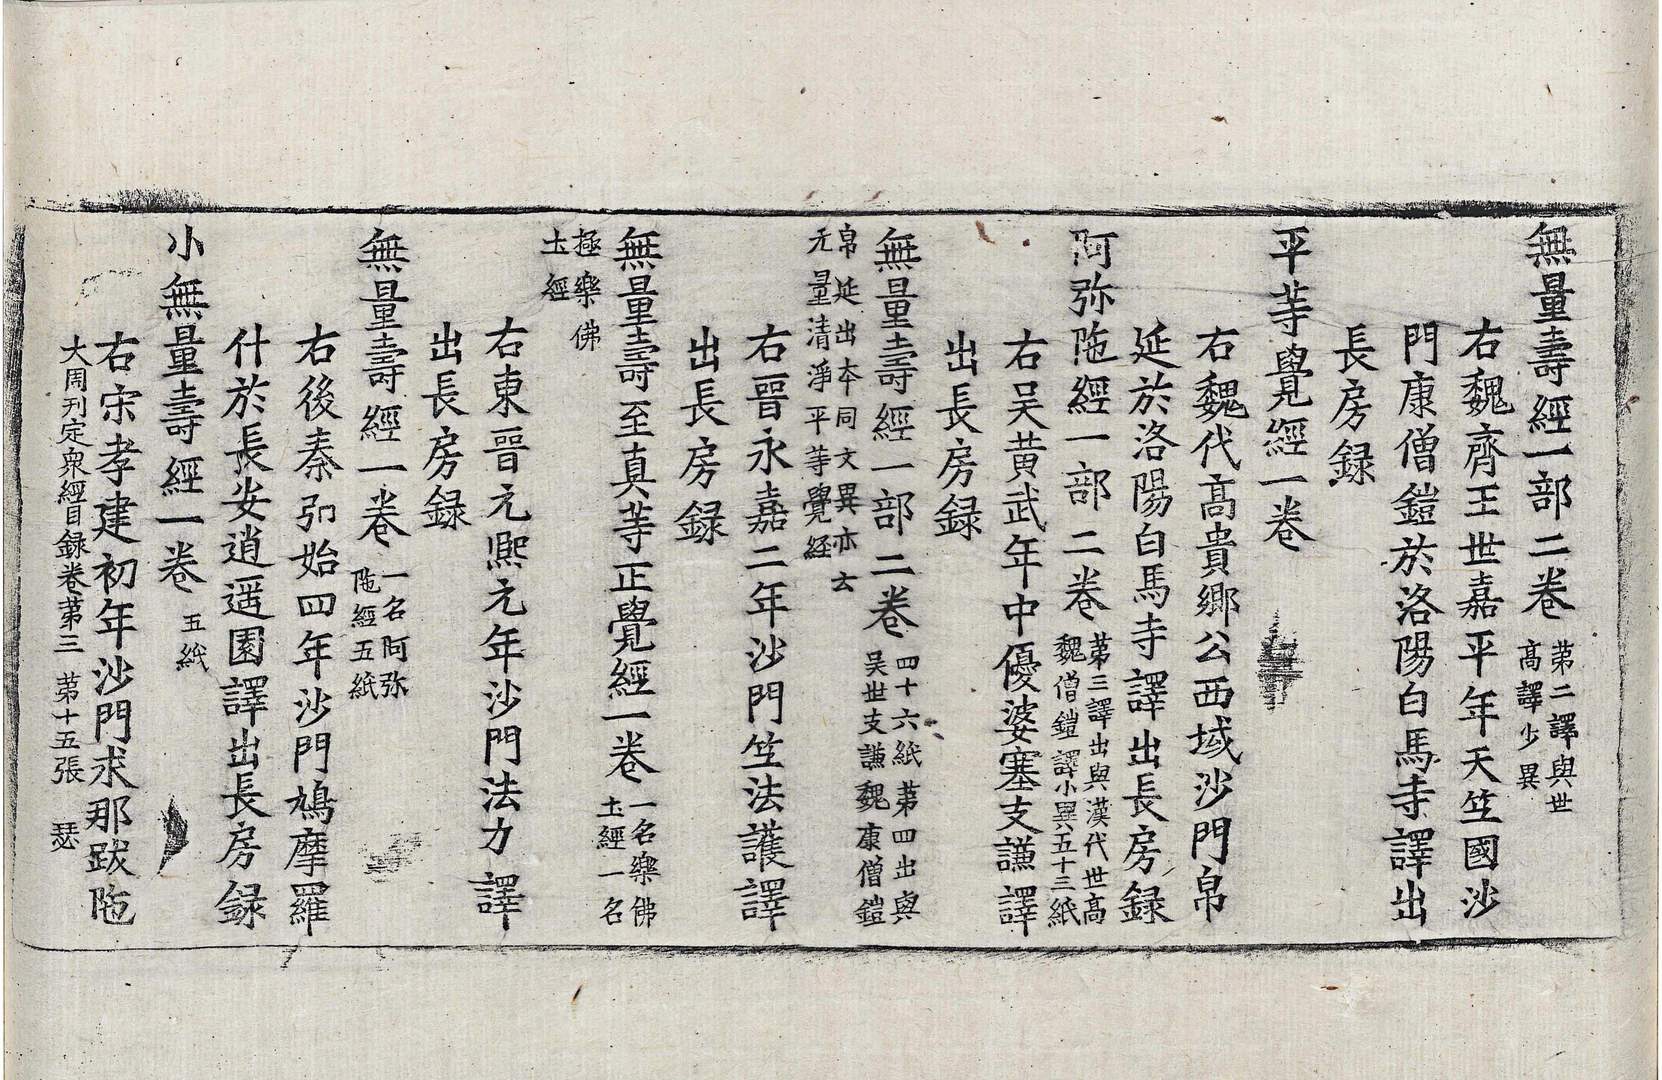 無量壽經一部二卷 第二譯與世高譯少異
右魏齊王世嘉平年天竺國沙
門康僧鎧於洛陽白馬寺譯出
長房録
平等覺經一卷
右魏代高貴鄉公西域沙門帛
延於洛陽白馬寺譯出長房録
阿弥陁經一部二卷 第三譯出與漢代世高魏僧鎧譯小異五十三紙
右吴黄武年中優婆塞支謙譯
出長房録
無量壽經一部二卷 四十六紙第四出與吴世支謙魏康僧鎧
帛延出本同文異亦云无量清淨平等覺経
右晉永嘉二年沙門竺法護譯
出長房録
無量壽至真等正覺經一卷 一名樂佛土經一名
極樂佛土經
右東晉元熙元年沙門法力譯
出長房録
無量壽經一卷 一名阿弥陁經五紙
右後秦弘始四年沙門鳩摩羅
什於長安逍遥園譯出長房録
小無量壽經一卷 五紙
右宋孝建初年沙門求那跋陁
大周刊定衆經目録卷第三 第十五張 瑟